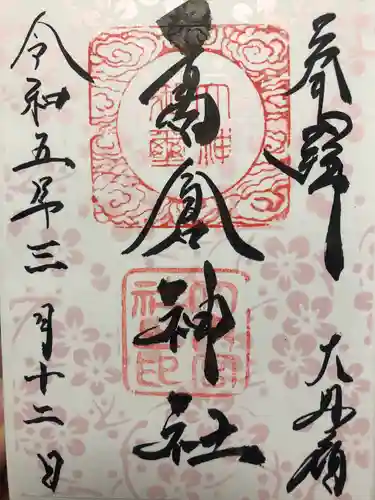 奉拝
大丹嶺
高倉神社
令和五年三月十二日